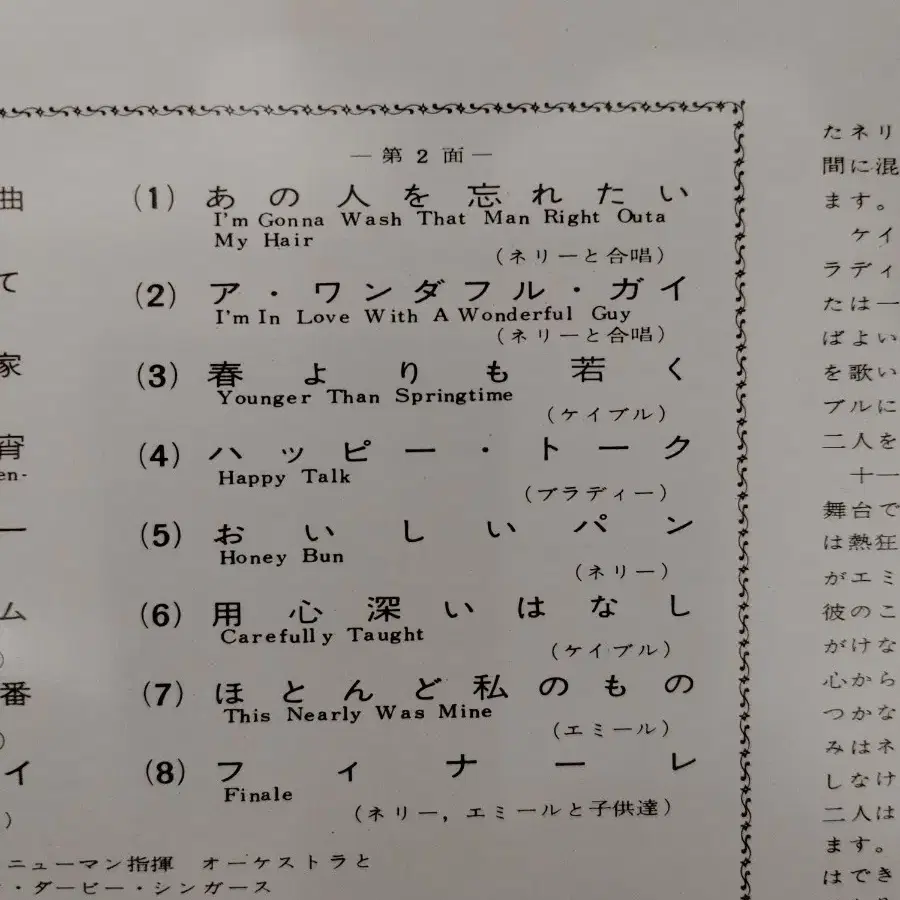 — 第 2 面 —
(1) あの人を忘れたい
I'm Gonna Wash That Man Right Outa
My Hair
(ネリーと合唱)
(2) ア・ワンダフル・ガイ
I'm In Love With A Wonderful Guy
(ネリーと合唱)
(3) 春よりも若く
Younger Than Springtime
(ケイブル)
(4) ハッピー・トーク
Happy Talk
(ブラディー)
(5) おいしいパン
Honey Bun
(ネリー)
(6) 用心深いはなし
Carefully Taught
(ケイブル)
(7) ほとんど私のもの
This Nearly Was Mine
(エミール)
(8) フィナーレ
Finale
(ネリー, エミールと子供達)
曲
て
家
宵
en-
ー
ム
)
番
)
イ
)
ニューマン指揮 オーケストラと
・ダービー・シンガース
たネリ
間に混
ます。
ケイ
ラディ
たは一
ばよい
を歌い
ブルに
二人を
十一
舞台で
は熱狂
がエミ
彼のこ
がけな
心から
つかな
みはネ
しなけ
二人は
ます。
はでき